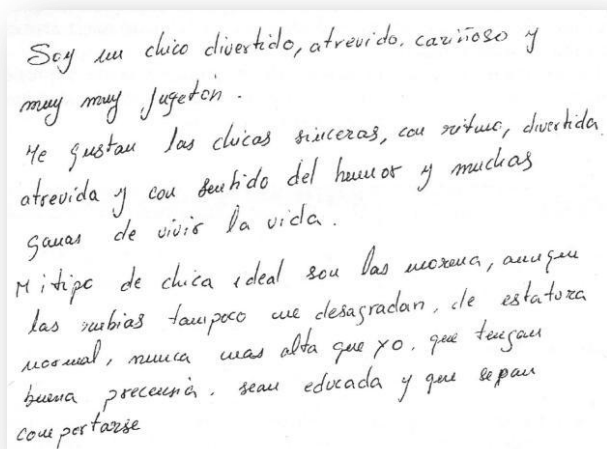 Soy un chico divertido, atrevido. cariñoso y
muy muy jugetón.
Me gustan las chicas sinceras, con ritmo, divertida
atrevida y con sentido del humor y muchas
ganas de vivir la vida.
Mi tipo de chica ideal son las morena, aunque
las rubias tampoco me desagradan, de estatura
normal, nunca mas alta que yo. que tengan
buena precencia. sean educada y que sepan
comportarse